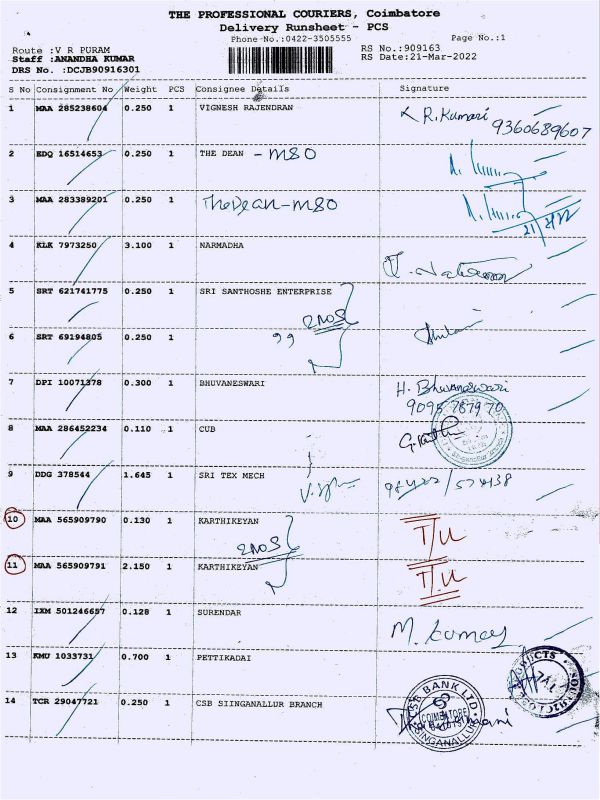 THE PROFESSIONAL COURIERS, Coimbatore
Delivery Runsheet - PCS
Phone No.:0422-3505555 Page No.:1
Route :V R PURAM RS No.:909163
Staff :ANANDHA KUMAR RS Date:21-Mar-2022
DRS No. :DCJB90916301
S No Consignment No Weight PCS Consignee Details Signature
1 MAA 285238604 0.250 1 VIGNESH RAJENDRAN R.Kumari
9360689607
2 EDQ 16514653 0.250 1 THE DEAN - M80
3 MAA 283389201 0.250 1 The Dean - M80
4 KLK 7973250 3.100 1 NARMADHA
5 SRT 621741775 0.250 1 SRI SANTHOSHE ENTERPRISE
2NOS
6 SRT 69194805 0.250 1 ,,
7 DPI 10071378 0.300 1 BHUVANESWARI H. Bhuvaneswari
9095 787970
8 MAA 286452234 0.110 1 CUB
9 DDG 378544 1.645 1 SRI TEX MECH
10 MAA 565909790 0.130 1 KARTHIKEYAN T/U
2NOS
11 MAA 565909791 2.150 1 KARTHIKEYAN T/U
12 IXM 501246657 0.128 1 SURENDAR M. Kumar
13 KMU 1033731 0.700 1 PETTIKADAI
14 TCR 29047721 0.250 1 CSB SIINGANALLUR BRANCH
CSB BANK LTD.
COIMBATORE
SINGANALLUR